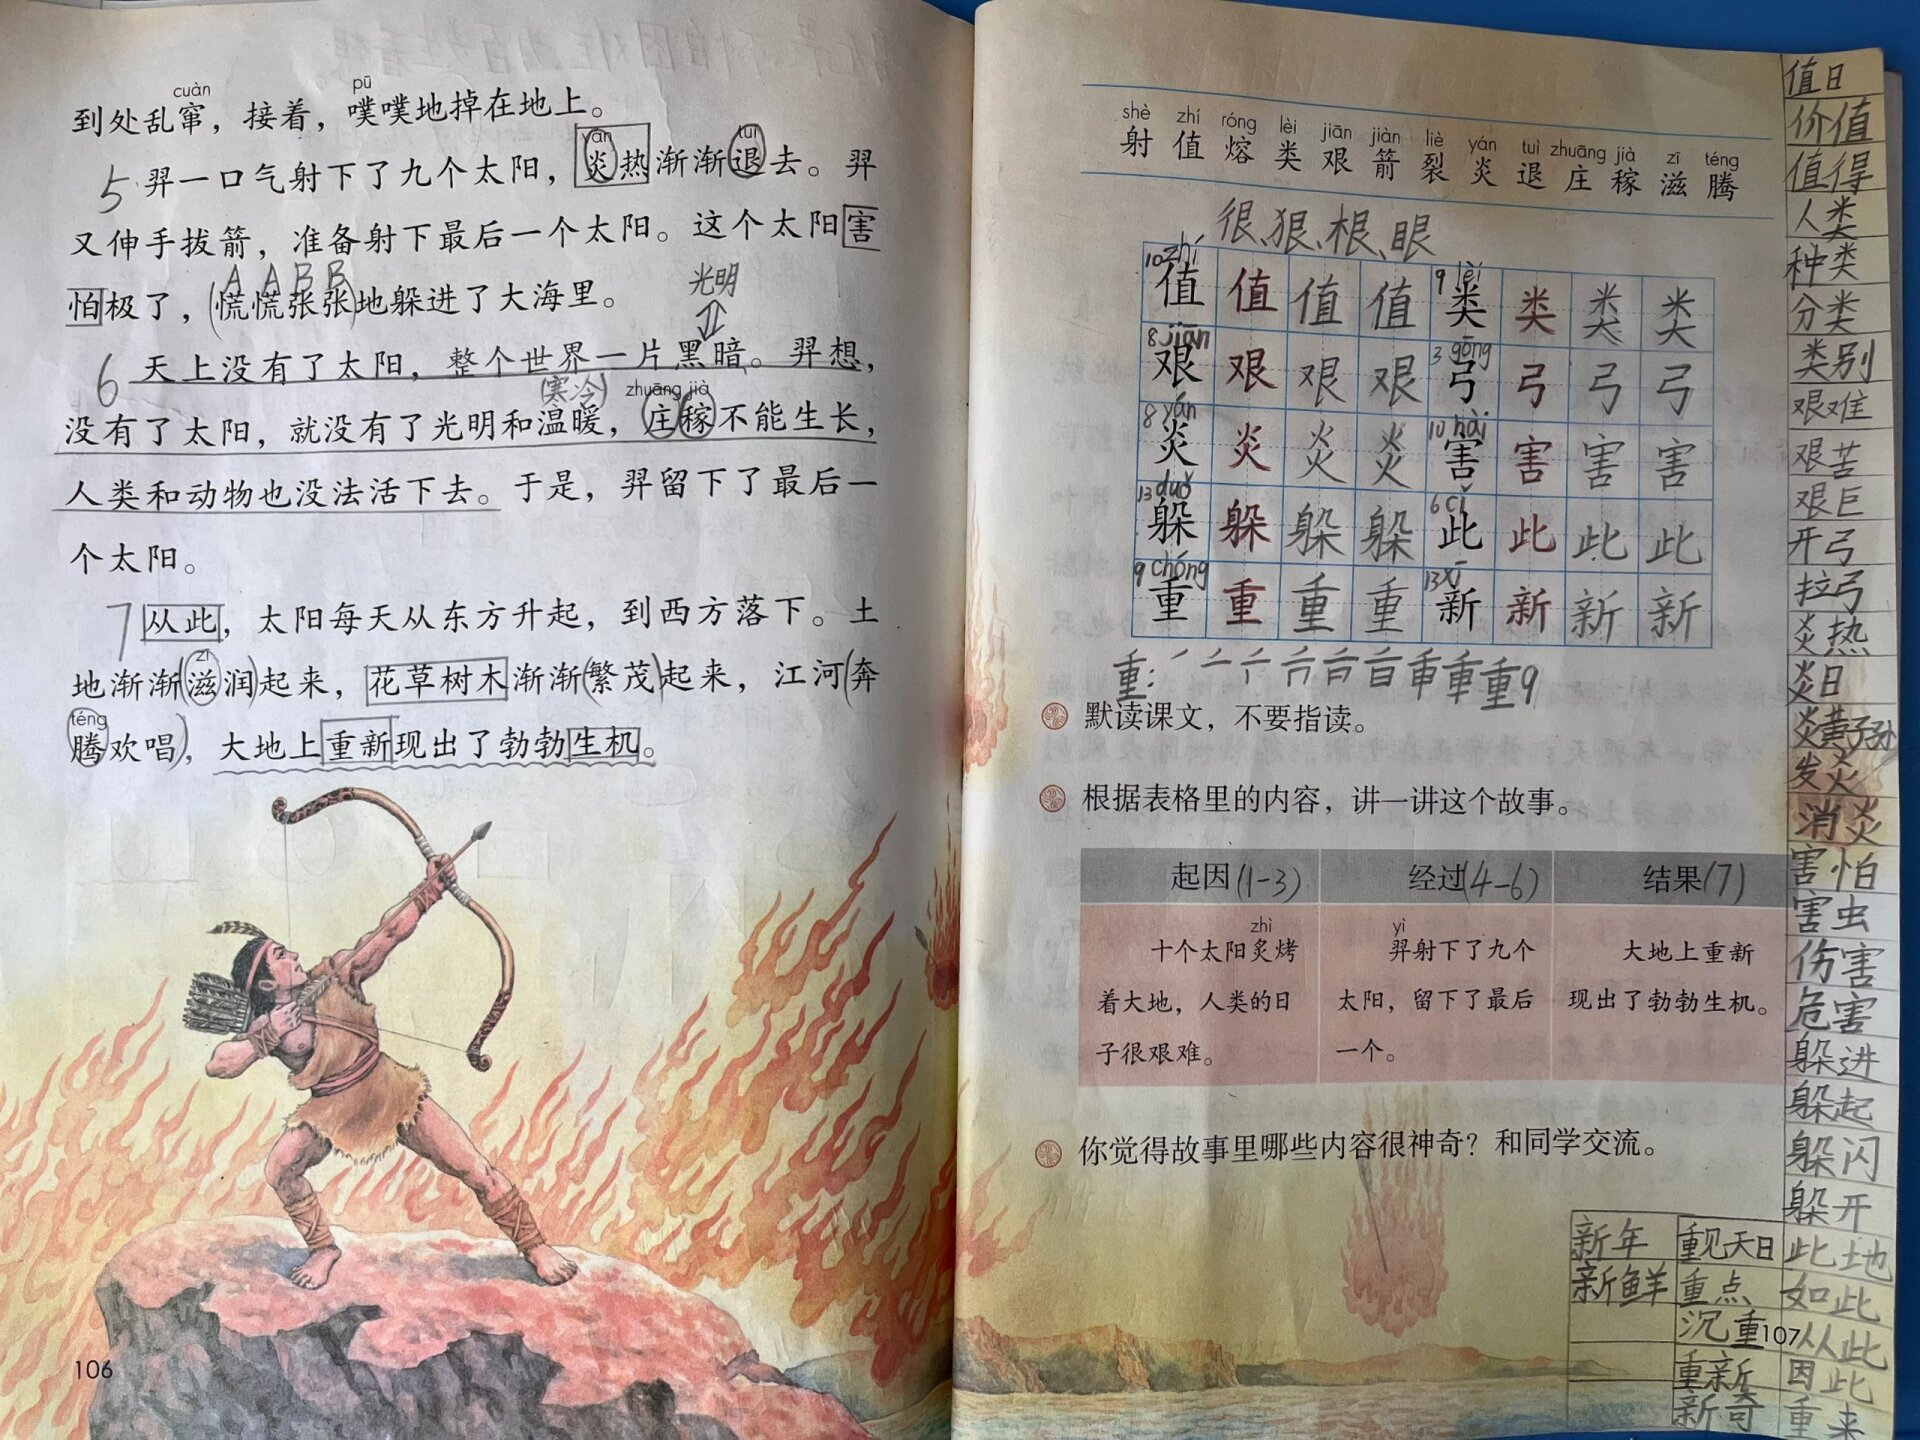 cuàn pū
到处乱窜，接着，噗噗地掉在地上。
yán tuì
5 羿一口气射下了九个太阳，炎热渐渐退去。羿
又伸手拔箭，准备射下最后一个太阳。这个太阳害
A A B B 光明
怕极了，(慌慌张张)地躲进了大海里。
6 天上没有了太阳，整个世界一片黑暗。羿想，
(寒冷) zhuāng jià
没有了太阳，就没有了光明和温暖，庄稼不能生长，
人类和动物也没法活下去。于是，羿留下了最后一
个太阳。
7 从此，太阳每天从东方升起，到西方落下。土
zī
地渐渐(滋润)起来，花草树木渐渐(繁茂)起来，江河(奔
téng
腾欢唱)，大地上重新现出了勃勃生机。
106
shè zhí róng lèi jiān jiàn liè yán tuì zhuāng jià zī téng
射 值 熔 类 艰 箭 裂 炎 退 庄 稼 滋 腾
很、狠、根、眼
10 zhí 9 lèi
值 值 值 值 类 类 类 类
8 jiān 3 gōng
艰 艰 艰 艰 弓 弓 弓 弓
8 yán 10 hài
炎 炎 炎 炎 害 害 害 害
13 duǒ 6 cǐ
躲 躲 躲 躲 此 此 此 此
9 chóng 13 xī
重 重 重 重 新 新 新 新
默读课文，不要指读。
根据表格里的内容，讲一讲这个故事。
起因(1-3) 经过(4-6) 结果(7)
zhì
十个太阳炙烤
着大地，人类的日
子很艰难。
yì
羿射下了九个
太阳，留下了最后
一个。
大地上重新
现出了勃勃生机。
你觉得故事里哪些内容很神奇？和同学交流。
值日
价值
值得
人类
种类
分类
类别
艰难
艰苦
艰巨
开弓
拉弓
炎热
炎日
炎黄子孙
发炎
消炎
害怕
害虫
伤害
危害
躲进
躲起
躲闪
躲开
此地
如此
从此
因此
重来
新年 重见天日
新鲜 重点
沉重
重新
新奇
107